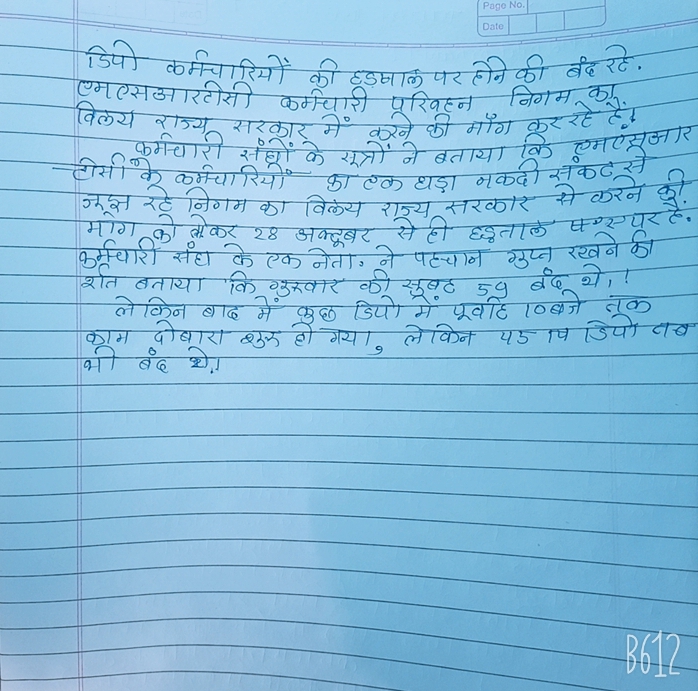 Page No.
Date
डिपो कर्मचारियों की हडताल पर होने की बंद रहे.
एमएसआरटीसी कर्मचारी परिवहन निगम का
विलय राज्य सरकार में करने की माँग कर रहे हैं!
कर्मचारी संघों के सूत्रों ने बताया कि एमएसआर
टीसी के कर्मचारियों का एक धड़ा नकदी संकट से
जूझ रहे निगम का विलय राज्य सरकार से करने की
मांग को लेकर 28 अक्टूबर से ही हड़ताल पर है.
कर्मचारी संघ के एक नेता. ने पहचान गुप्त रखने की
शर्त बताया कि गुरूवार की सुबह 59 बंद थे,!
लेकिन बाद में कुछ डिपो में पूर्वाह 10बजे तक
काम दोबारा शुरू हो गया, लेकिन 45 डिपो तब
भी बंद थे.!
B612